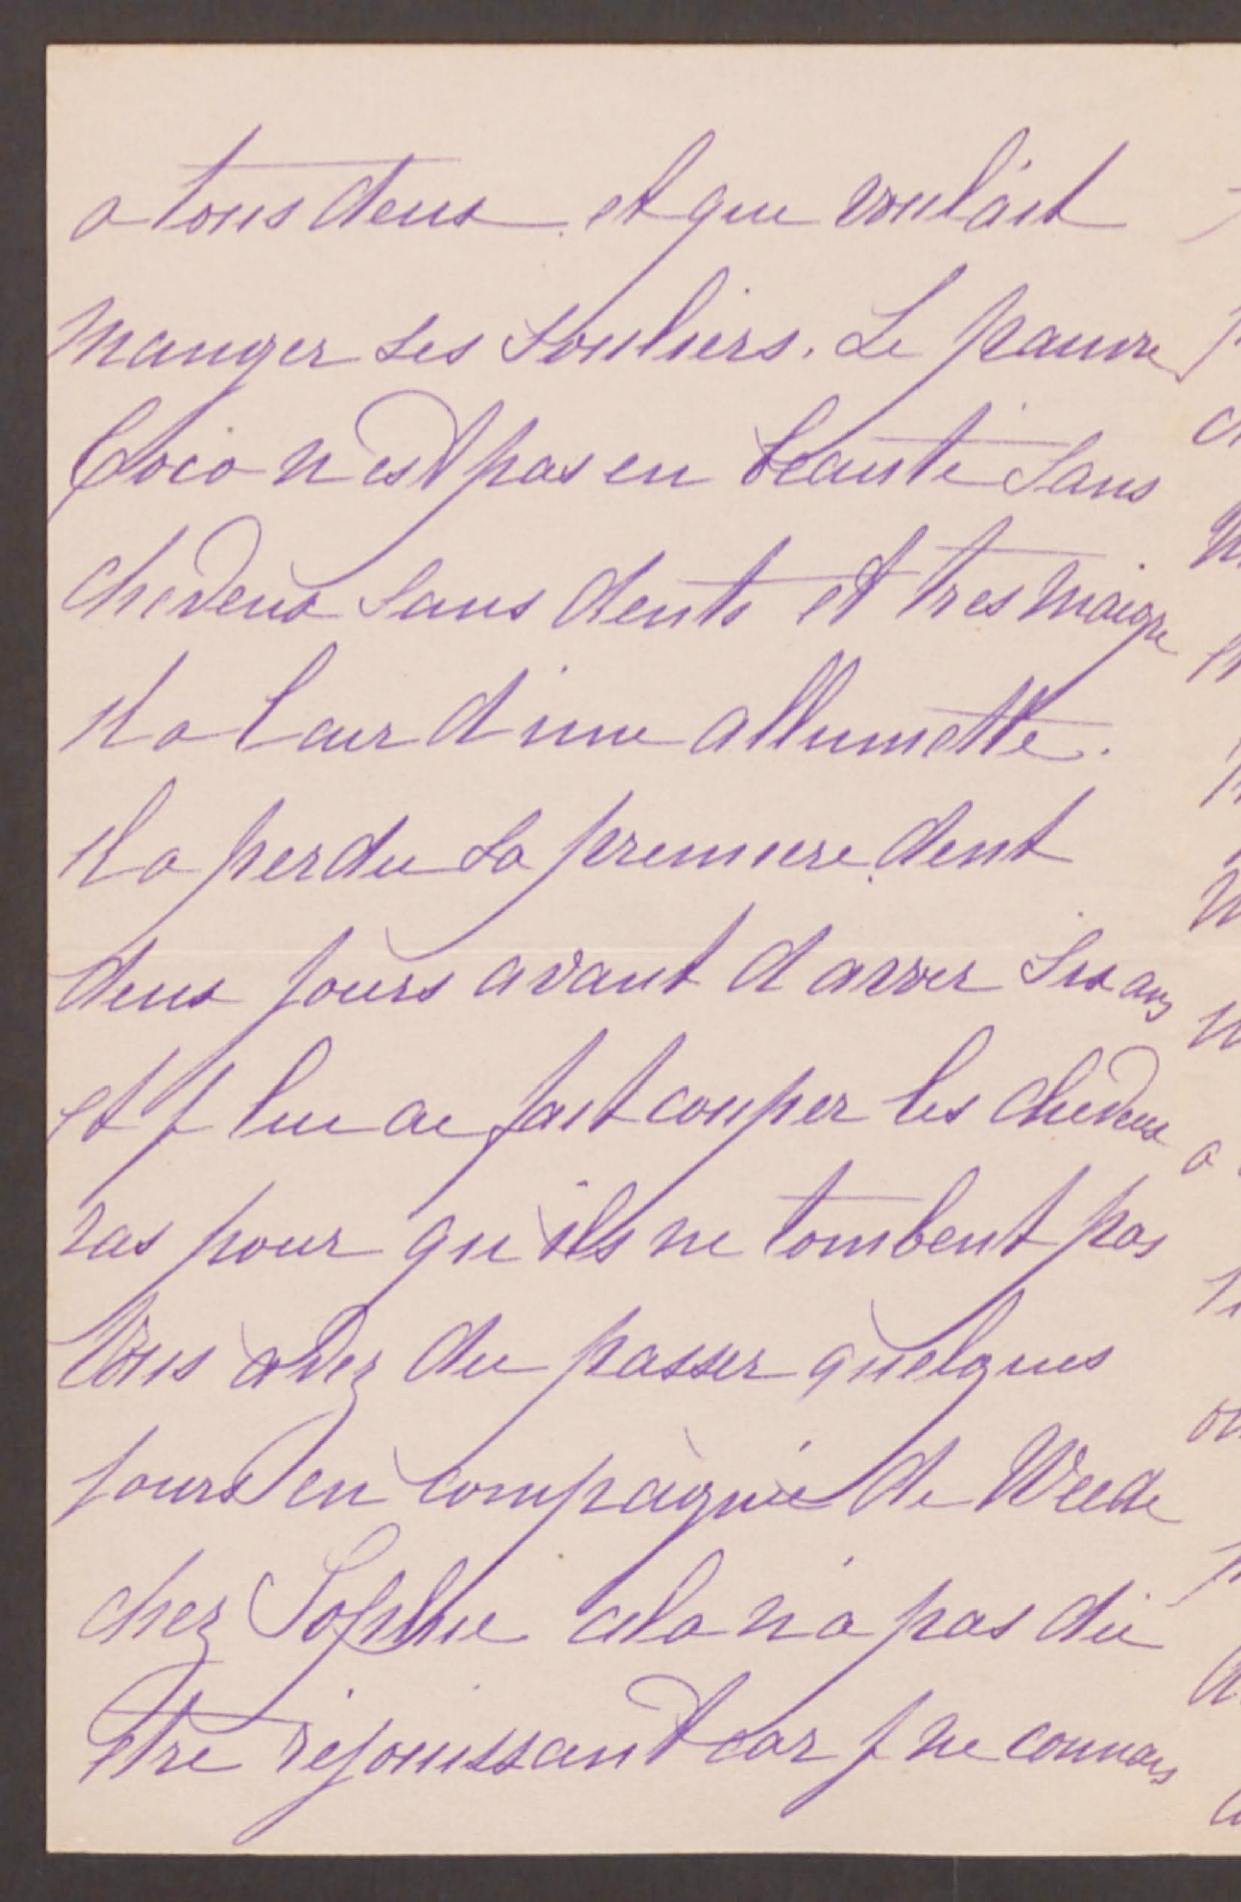 a tous deux et qui voulait
manger ses souliers. Le pauvre
Coco n'est pas en beauté sans
cheveux sans dents et tres maigre
il a l'air d'une allumette.
il a perdu sa premiere dent
deux jours avant d'avoir six ans
et j lui ai fait couper les cheveux
ras pour qu'ils ne tombent pas
Vous avez du passer quelques
jours en compagnie de Weede
chez Sophie cela n'a pas dû
être réjouissant car j ne connais